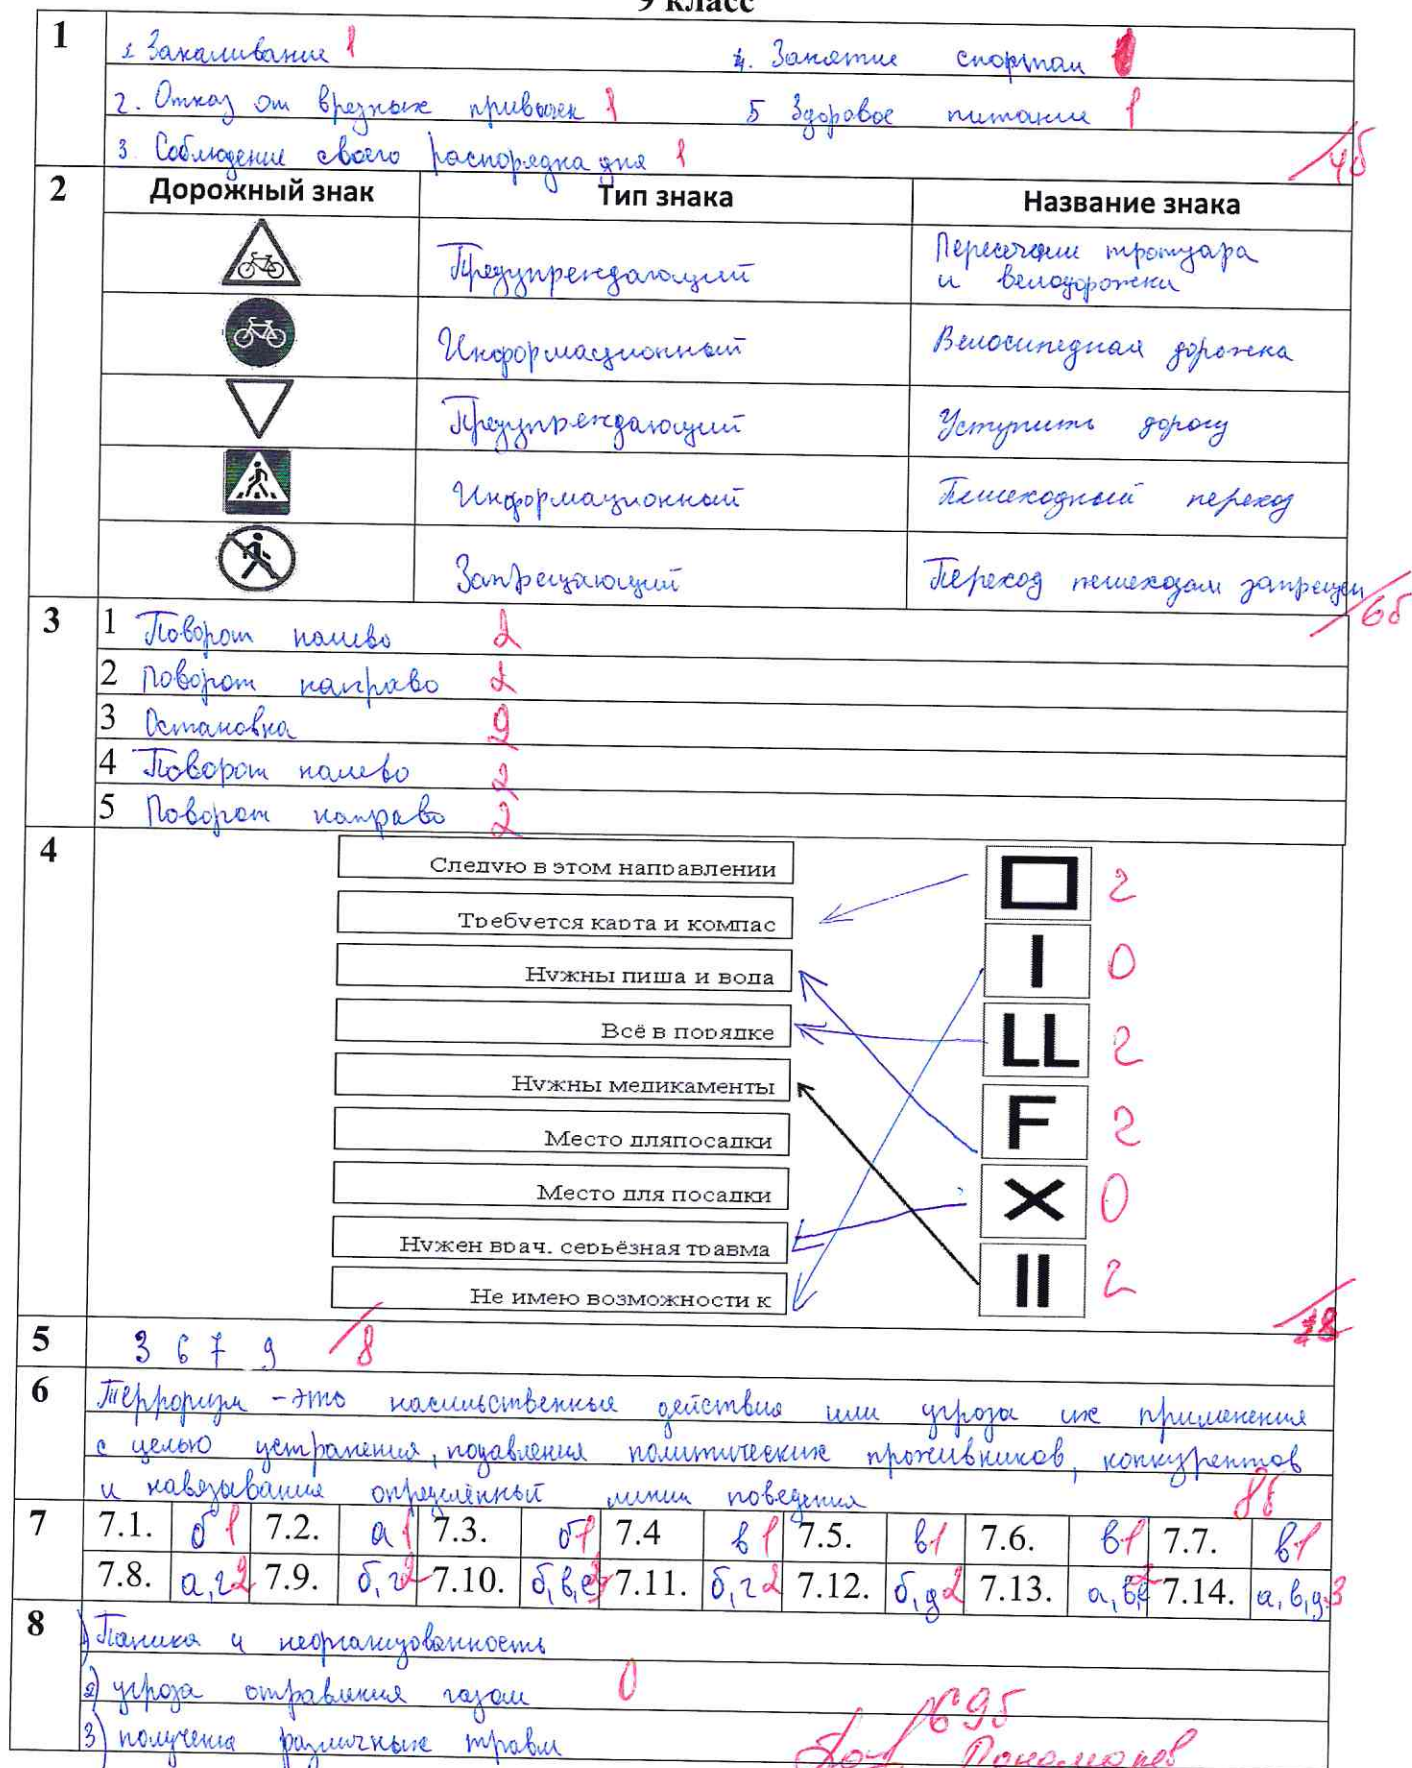 9 класс
1
1. Закаливание 1 4. Занятие спортом
2. Отказ от вредных привычек 1 5 Здоровое питание 1
3. Соблюдение своего распорядка дня 1 /4б
2 Дорожный знак Тип знака Название знака
Предупреждающий Пересечение тротуара
и велодорожки
Информационный Велосипедная дорожка
Предупреждающий Уступить дорогу
Информационный Пешеходный переход
Запрещающий Переход пешеходам запрещен
/6б
3 1 Поворот налево 2
2 Поворот направо 2
3 Остановка 2
4 Поворот налево 2
5 Поворот направо 2
4
Следую в этом направлении 2
Требуется карта и компас
Нужны пиша и вода I 0
Всё в порядке LL 2
Нужны медикаменты F 2
Место дляпосадки
Место для посадки X 0
Нужен врач, серьёзная травма
Не имею возможности к II 2
/18
5 3 6 7 9 /8
6 Терроризм - это насильственные действия или угроза их применения
с целью устранения, подавления политических противников, конкурентов
и навязывания определённый линии поведения 8б
7 7.1. б 1 7.2. а 1 7.3. б 1 7.4 в 1 7.5. в 1 7.6. в 1 7.7. в 1
7.8. а,г 2 7.9. б,г 2 7.10. б,в,е 3 7.11. б,г 2 7.12. б,д 2 7.13. а,в,е 2 7.14. а,в,д 3
8
1) Паника и неорганизованность
2) угроза отравления газом 0
3) получение различных травм
/69б
Пономарев